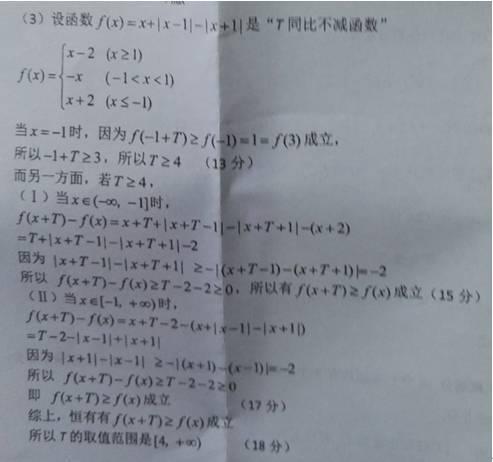 （3）设函数 f(x)=x+|x-1|-|x+1| 是“T同比不减函数”
f(x)={x-2 (x≥1)
-x (-1<x<1)
x+2 (x≤-1)
当x=-1时，因为 f(-1+T)≥f(-1)=1=f(3) 成立，
所以-1+T≥3，所以T≥4 （13分）
而另一方面，若T≥4，
（Ⅰ）当x∈(-∞, -1]时，
f(x+T)-f(x)=x+T+|x+T-1|-|x+T+1|-(x+2)
=T+|x+T-1|-|x+T+1|-2
因为 |x+T-1|-|x+T+1| ≥-|(x+T-1)-(x+T+1)|=-2
所以 f(x+T)-f(x)≥T-2-2≥0，所以有 f(x+T)≥f(x) 成立（15分）
（Ⅱ）当x∈[-1, +∞)时，
f(x+T)-f(x)=x+T-2-(x+|x-1|-|x+1|)
=T-2-|x-1|+|x+1|
因为 |x+1|-|x-1| ≥-|(x+1)-(x-1)|=-2
所以 f(x+T)-f(x)≥T-2-2≥0
即 f(x+T)≥f(x) 成立 （17分）
综上，恒有有 f(x+T)≥f(x) 成立
所以T的取值范围是[4, +∞) （18分）